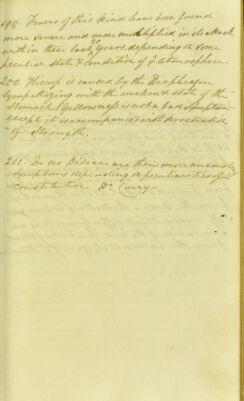 199. Fevers of this kind have been found
more severe and more multiplied in its attack
within these last 20 years, depending on some
peculiar state & condition of ye. atmosphere.
200. Hiccup is caused by the Diaphragm
sympathizing with the weaken'd state of the
stomach. Yellowness is not a bad symptom
except it is accompanied with prostration
of strength.
201. In no Disease are there more anomalous
symptoms depending on peculiarities of
constitution. Dr. Curry